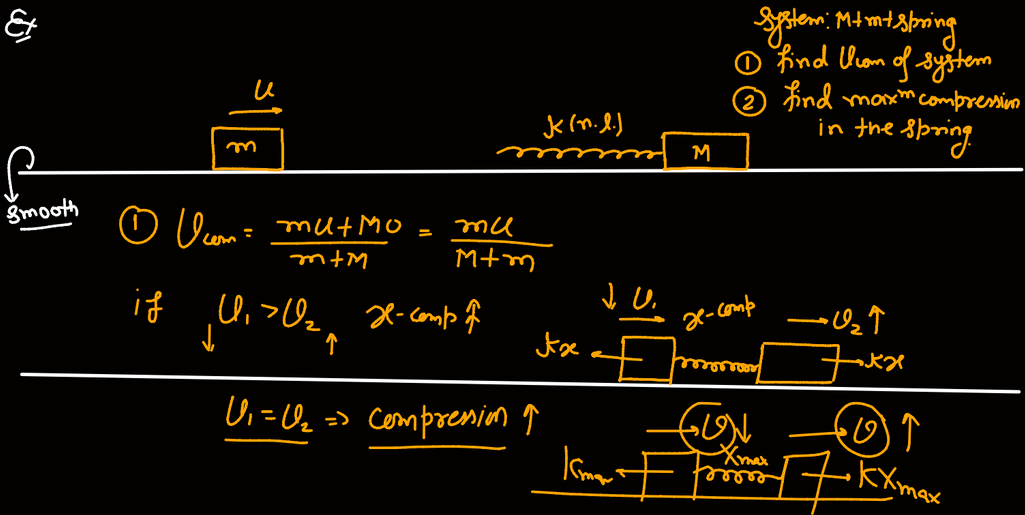 Ex
System: M+m+spring
① find Ucom of system
② find maxᵐ compression
in the spring.
u
m
K (n.l.)
M
smooth
① Ucom = mu+M0 / m+M = mu / M+m
if U₁ > U₂ x-comp ↑
↓ ↑
↓ U₁ x-comp U₂ ↑
kx kx
U₁ = U₂ ⇒ compression ↑
U ↓ U ↑
Xmax
Kmax KXmax